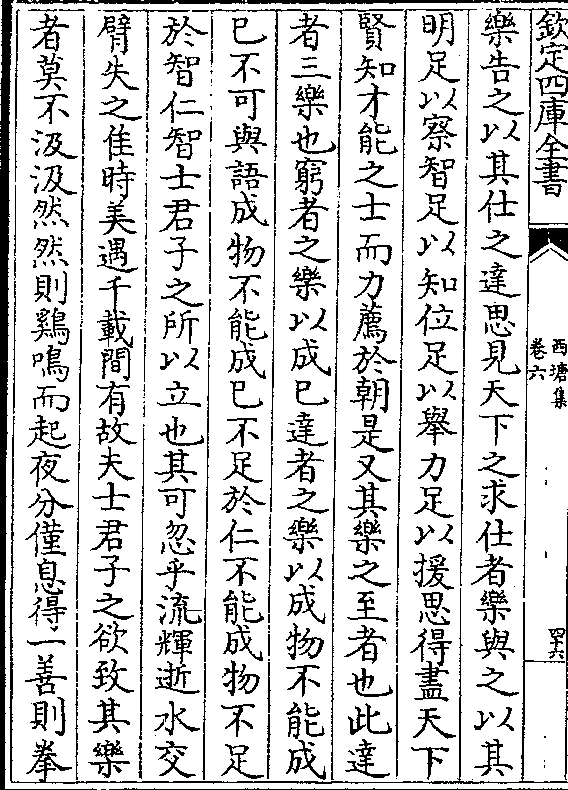 欽定四庫全書
西塘集
卷六
四六
樂告之以其仕之達思見天下之求仕者樂與之以其
明足以察智足以知位足以舉力足以援思得盡天下
賢知才能之士而力薦於朝是又其樂之至者也此達
者三樂也窮者之樂以成已達者之樂以成物不能成
已不可與語成物不能成已不足於仁不能成物不足
於智仁智士君子之所以立也其可忽乎流輝逝水交
臂失之佳時美遇千載間有故夫士君子之欲致其樂
者莫不汲汲然然則鷄鳴而起夜分僅息得一善則拳